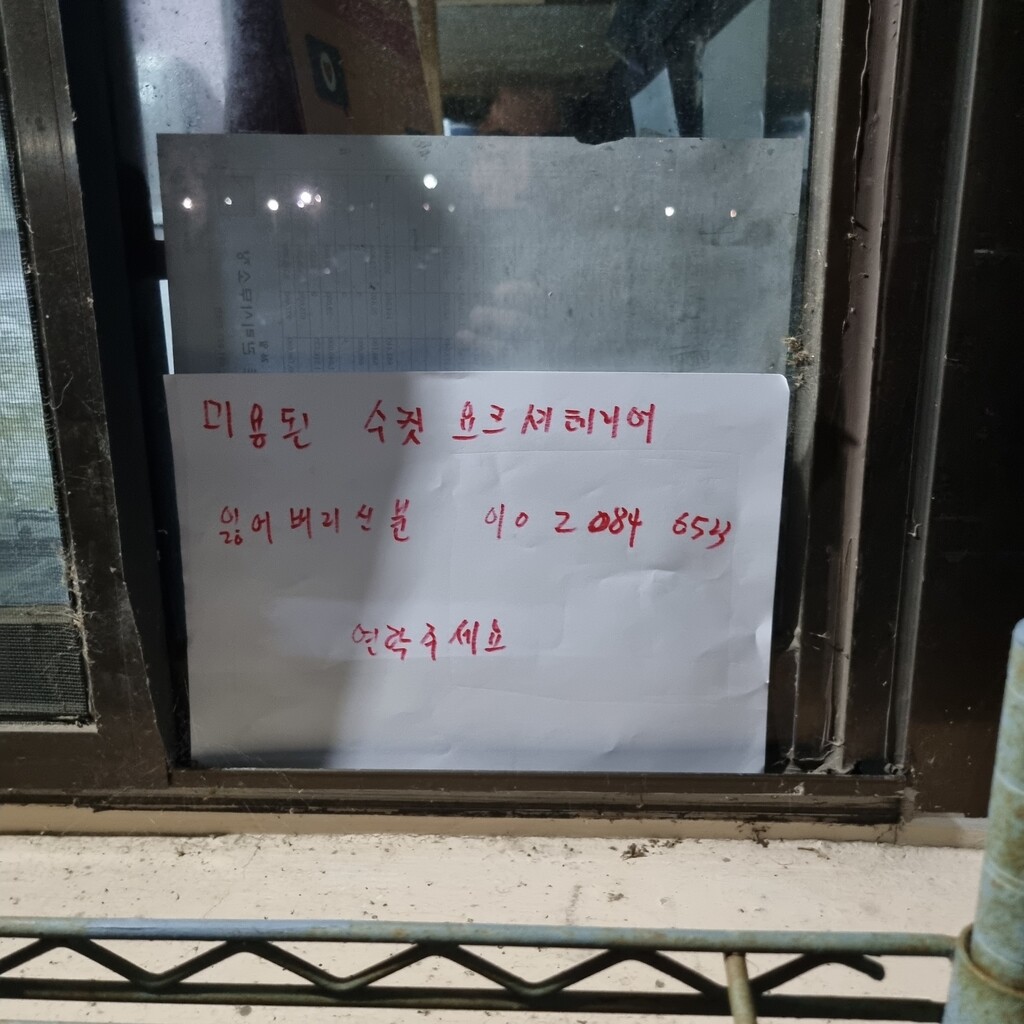 미용된 수컷 요크셔테리어
잃어버리신분 010 2084
연락주세요